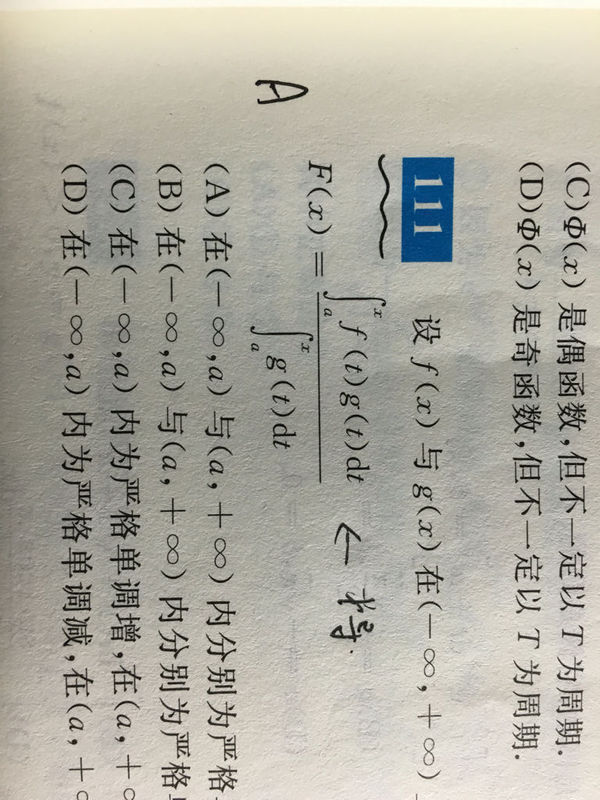 (C)Φ(x) 是偶函数,但不一定以 T 为周期.
(D)Φ(x) 是奇函数,但不一定以 T 为周期.
111 设 f(x) 与 g(x) 在(-∞,+∞)
F(x) = \frac{∫_a^x f(t)g(t)dt}{∫_a^x g(t)dt} ←
A
(A) 在(-∞,a) 与(a,+∞) 内分别为严格
(B) 在(-∞,a) 与(a,+∞) 内分别为严格
(C) 在(-∞,a) 内为严格单调增,在(a,+
(D) 在(-∞,a) 内为严格单调减,在(a,+